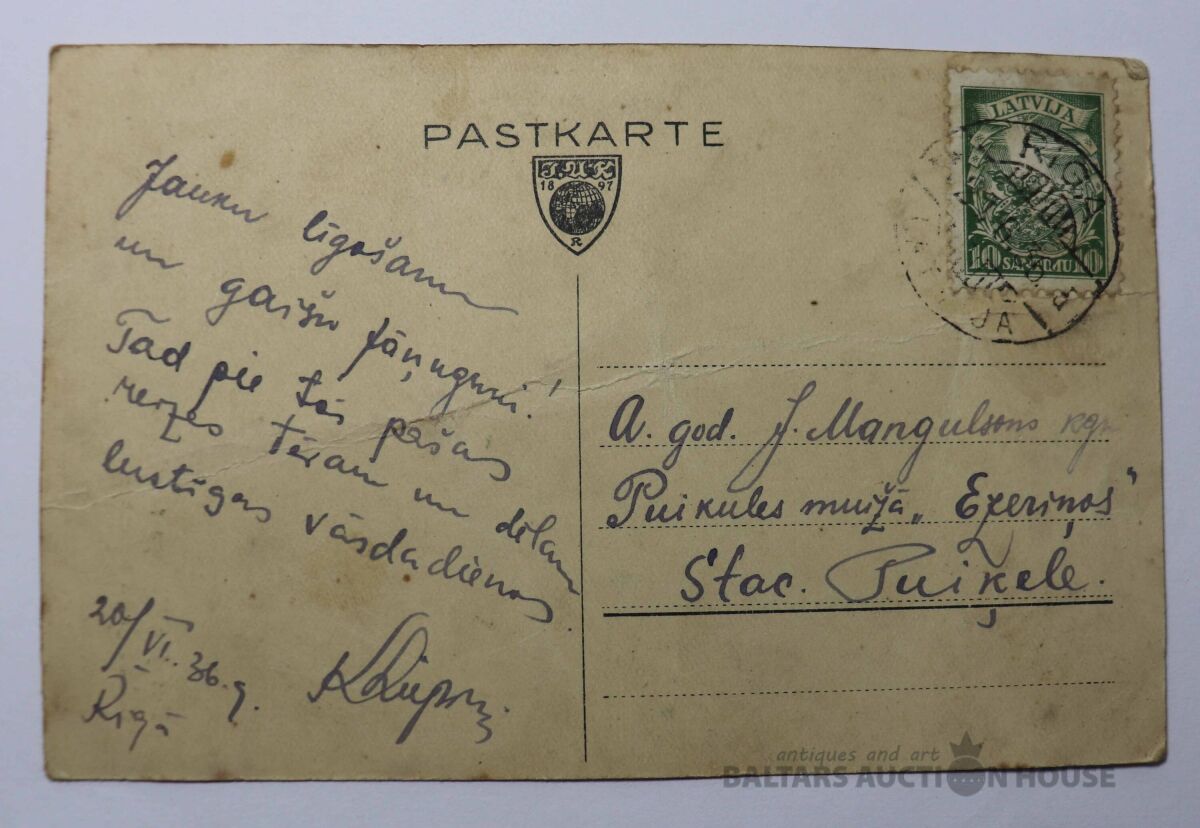 PASTKARTE
J.U.K.
18 97
R
LATVIJA
10 SANTIMU 10
RIGA
Jauku līgošanu
un gaišu Jāņuguni!
Tad pie tās pašas
reizes tēvam un dēlam
lustīgas vārda dienas.
20/VI.36.g.
Rīgā
A. god. J. Mangulsons kgm
Puikules muižā „Ezeriņos"
Stac. Puiķele.
antiques and art
BALTARS AUCTION HOUSE